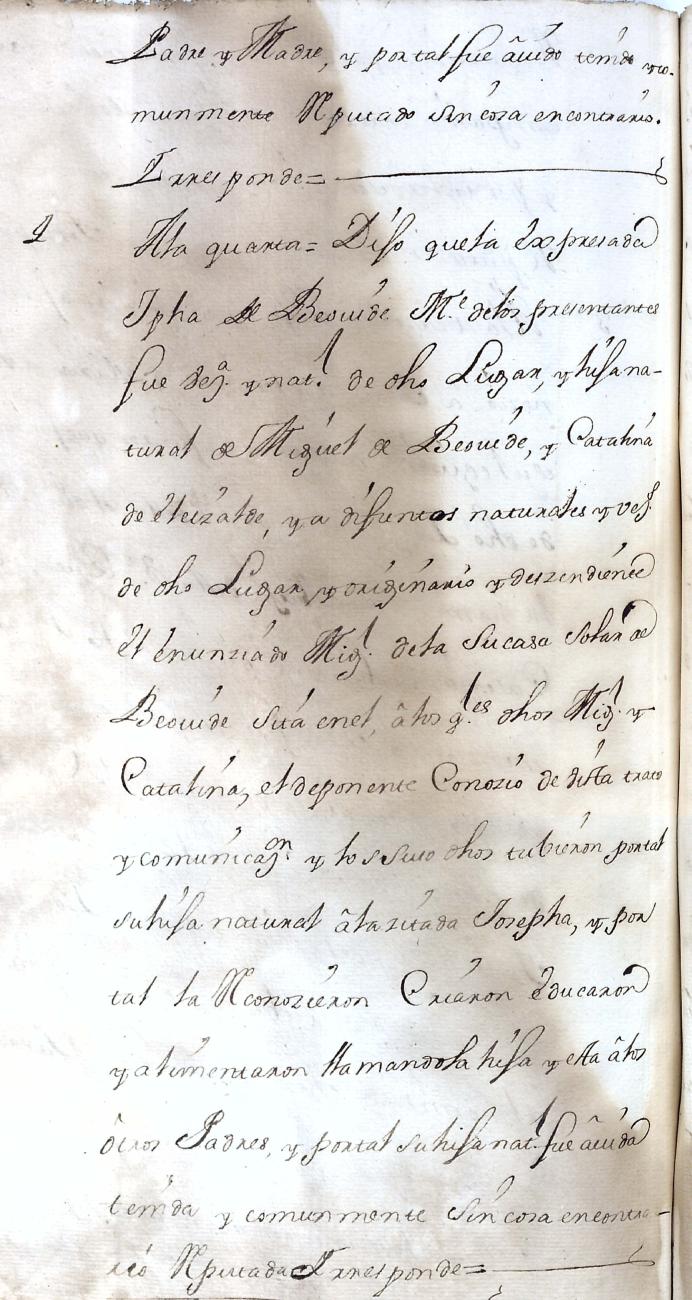 Padre y Madre, y por tal fue âuido tenido y co-
munmente Rputado sin cosa en contrario.
Irresponde=
4 Ala quarta= Dijo que la Expresada
Jpha de Beouide M.e delos presentantes
fue vez.a y nat.l de dho Lugar, y hija na-
tural de Miguel de Beouide, y Catalina
de Eleizalde, ya difuntos naturales y vez.s
de dho Lugar y originario y deszendiente
El enunziado Mig.l dela Su casa Solar de
Beouide Sita enel, âlos q.les dhos Mig.l y
Catalina, el deponente Conozio de vista trato
y comunicaz.on y los Suso dhos tubieron por tal
su hija natural âla zitada Josepha, y por
tal la Rconozieron Criaron educaron
y alimentaron llamandola hija y ella âlos
dichos Padres, y por tal su hija nat.l fue âuida
tenida y comunmente Sin cosa en contra-
rio Rputada Irresponde=